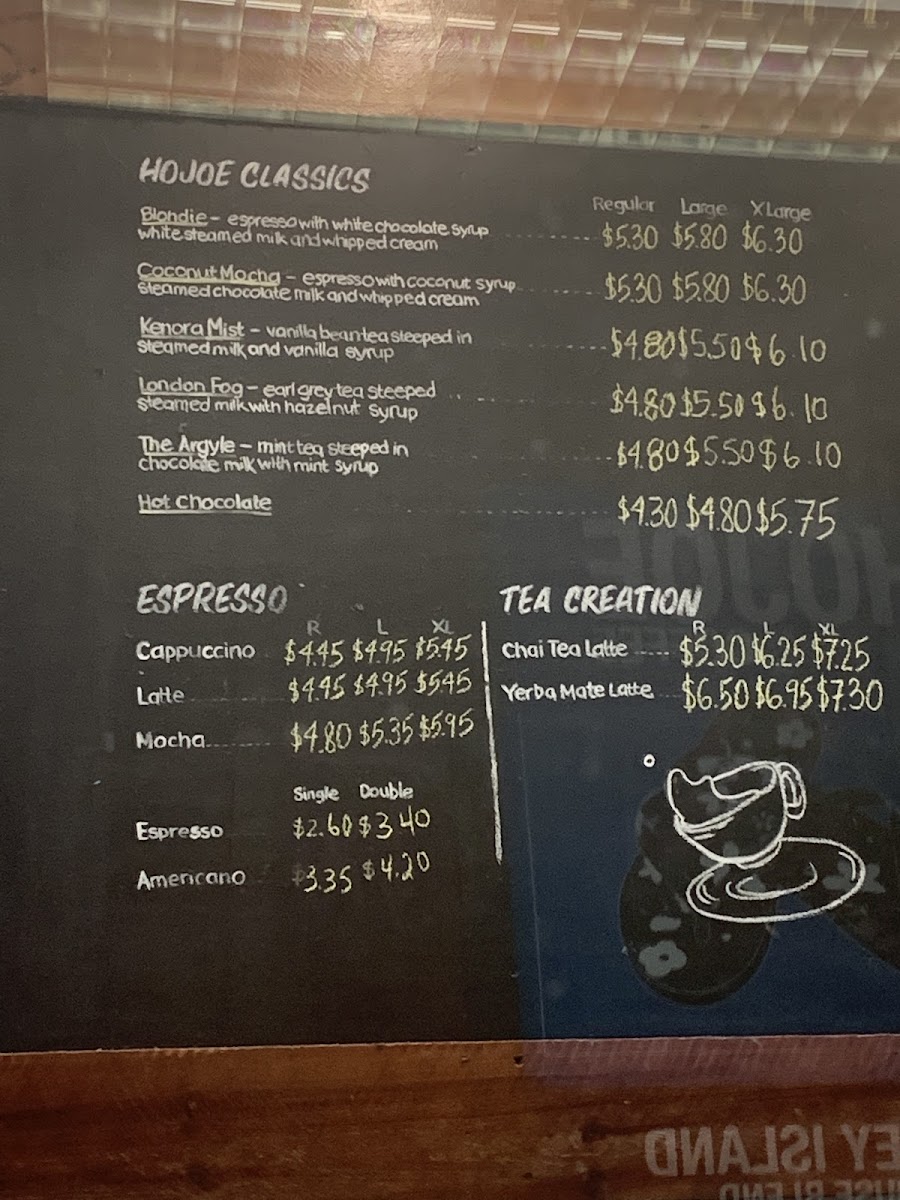 HOJOE CLASSICS
Regular Large XLarge
Blondie - espresso with white chocolate syrup
white steamed milk and whipped cream ---------- $5.30 $5.80 $6.30
Coconut Mocha - espresso with coconut syrup
steamed chocolate milk and whipped cream $5.30 $5.80 $6.30
Kenora Mist - vanilla bean tea steeped in
steamed milk and vanilla syrup $4.80 $5.50 $6.10
London Fog - earl grey tea steeped
steamed milk with hazelnut syrup $4.80 $5.50 $6.10
The Argyle - mint tea steeped in
chocolate milk with mint syrup $4.80 $5.50 $6.10
Hot Chocolate $4.30 $4.80 $5.75
ESPRESSO
R L XL
Cappuccino $4.45 $4.95 $5.45
Latte $4.45 $4.95 $5.45
Mocha $4.80 $5.35 $5.95
Single Double
Espresso $2.60 $3.40
Americano $3.35 $4.20
TEA CREATION
R L XL
Chai Tea Latte ---- $5.30 $6.25 $7.25
Yerba Mate Latte $6.50 $6.95 $7.30
HOJOE
EY ISLAND
USE BLEND